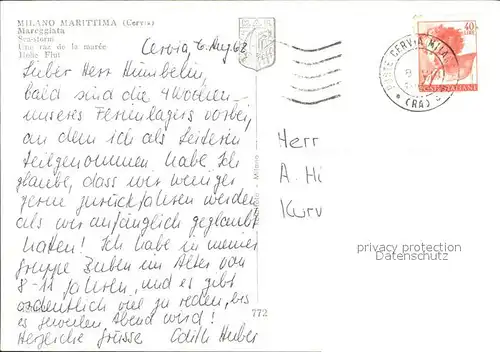 MILANO MARITTIMA (Cervia)
Mareggiata
Sea-storm
Une raz de la marée
Hohe Flut
Cervia, 6. Aug 62
Lieber Herr Hümbelin,
bald sind die 4 Wochen
unseres Ferienlagers vorbei,
an dem ich als Leiterin
teilgenommen habe. Ich
glaube, dass wir weniger
gerne zurückfahren werden
als wir anfänglich geglaubt
hatten! Ich habe in meiner
gruppe Buben im Alter von
8-11 Jahren, und es gibt
ordentlich viel zu reden, bis
es jeweilen Abend wird!
Herzliche grüsse Edith Huber
772
Milano
Herr
A. Hi
Kurv
40
LIRE
POSTE ITALIANE
POSTE CERVIA MILA
(RA)
privacy protection
Datenschutz